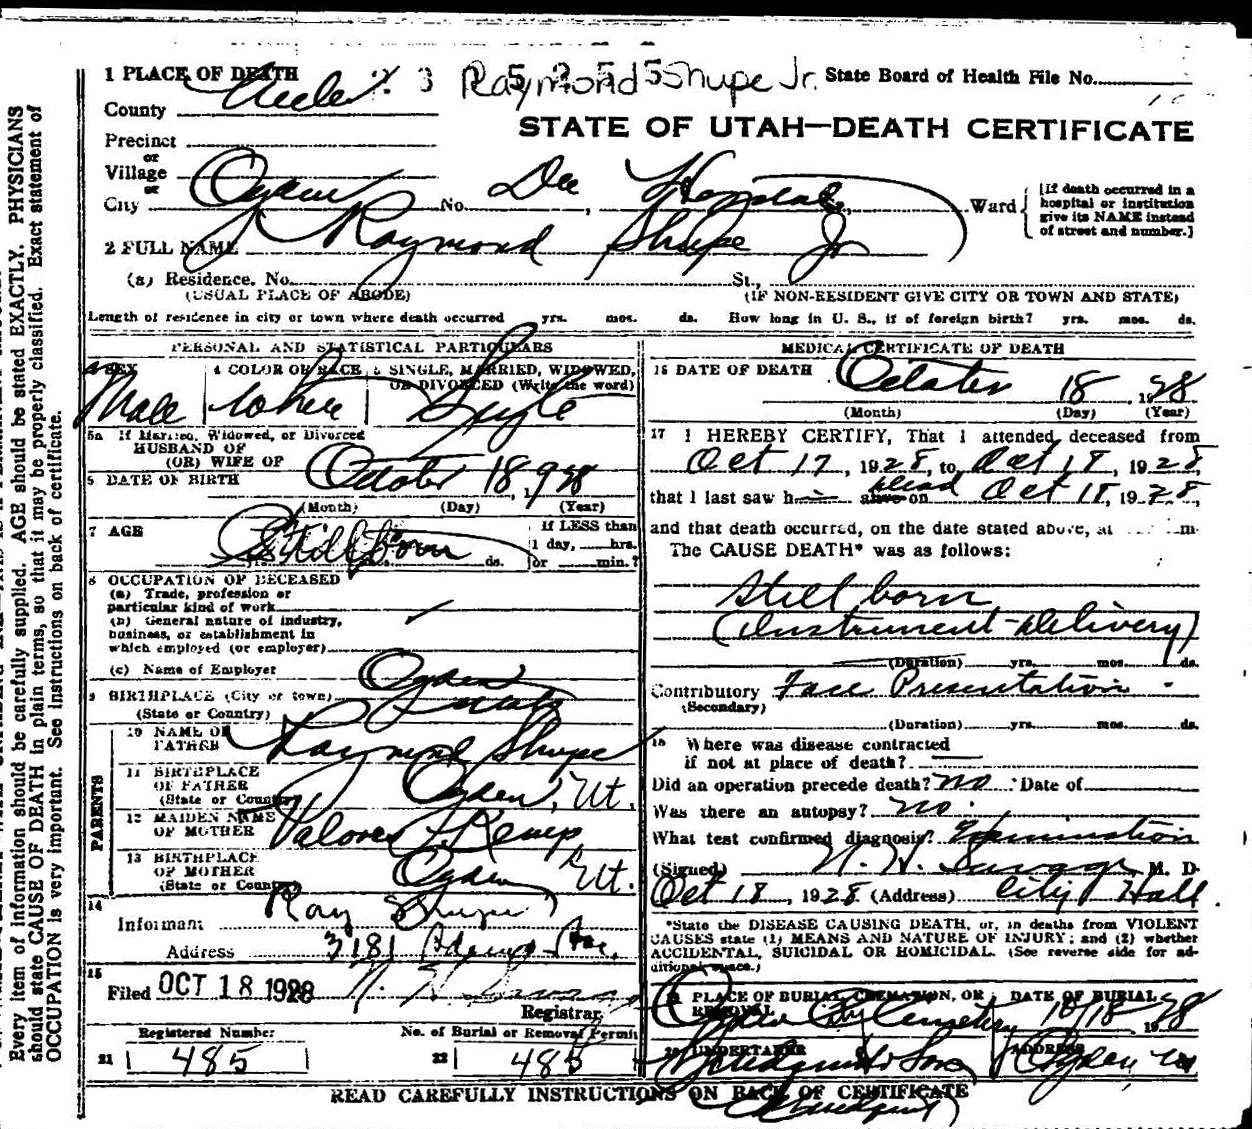 1 PLACE OF DEATH 3 5255 Raymond Shupe Jr. State Board of Health File No.
County Weber
STATE OF UTAH—DEATH CERTIFICATE
Precinct
or
Village
or
City Ogden No. Dee Hospital, Ward
[If death occurred in a
hospital or institution
give its NAME instead
of street and number.]
2 FULL NAME Raymond Shupe Jr
(a) Residence. No. St.,
(USUAL PLACE OF ABODE) (IF NON-RESIDENT GIVE CITY OR TOWN AND STATE)
Length of residence in city or town where death occurred yrs. mos. ds. How long in U. S., if of foreign birth? yrs. mos. ds.
PERSONAL AND STATISTICAL PARTICULARS
3 SEX 4 COLOR OR RACE 5 SINGLE, MARRIED, WIDOWED,
OR DIVORCED (Write the word)
Male white Single
5a If Married, Widowed, or Divorced
HUSBAND OF
(OR) WIFE OF
6 DATE OF BIRTH October 18, 1928
(Month) (Day) (Year)
7 AGE Stillborn ds.
if LESS than
1 day, hrs.
or min.?
8 OCCUPATION OF DECEASED
(a) Trade, profession or
particular kind of work
(b) General nature of industry,
business, or establishment in
which employed (or employer)
(c) Name of Employer
9 BIRTHPLACE (City or town) Ogden
(State or Country) Utah
PARENTS
10 NAME OF
FATHER Raymond Shupe
11 BIRTHPLACE
OF FATHER
(State or Country) Ogden, Ut.
12 MAIDEN NAME
OF MOTHER Kemp
13 BIRTHPLACE
OF MOTHER
(State or Country) Ogden Ut.
14
Informant Ray Shupe
Address 3181 Adams Ave.
15
Filed OCT 18 1928
Registrar.
Registered Number No. of Burial or Removal Permit
21 485 22 485
MEDICAL CERTIFICATE OF DEATH
16 DATE OF DEATH October 18, 1928
(Month) (Day) (Year)
17 I HEREBY CERTIFY, That I attended deceased from
Oct 17, 1928, to Oct 18, 1928,
that I last saw h alive on dead Oct 18, 1928,
and that death occurred, on the date stated above, at m.
The CAUSE DEATH* was as follows:
Still born
(Instrument-Delivery)
(Duration) yrs. mos. ds.
Contributory Face Presentation
(Secondary)
(Duration) yrs. mos. ds.
18 Where was disease contracted
if not at place of death?
Did an operation precede death? No Date of
Was there an autopsy? No.
What test confirmed diagnosis? Examination
(Signed) M. D.
Oct 18, 1928 (Address) City Hall.
*State the DISEASE CAUSING DEATH, or, in deaths from VIOLENT
CAUSES state (1) MEANS AND NATURE OF INJURY; and (2) whether
ACCIDENTAL, SUICIDAL OR HOMICIDAL. (See reverse side for ad-
ditional space.)
19 PLACE OF BURIAL, CREMATION, OR
REMOVAL
DATE OF BURIAL
Ogden City Cemetery 10/18, 1928
20 UNDERTAKER ADDRESS
& Sons Ogden
READ CAREFULLY INSTRUCTIONS ON BACK OF CERTIFICATE
Every item of information should be carefully supplied. AGE should be stated EXACTLY. PHYSICIANS
should state CAUSE OF DEATH in plain terms, so that it may be properly classified. Exact statement of
OCCUPATION is very important. See instructions on back of certificate.